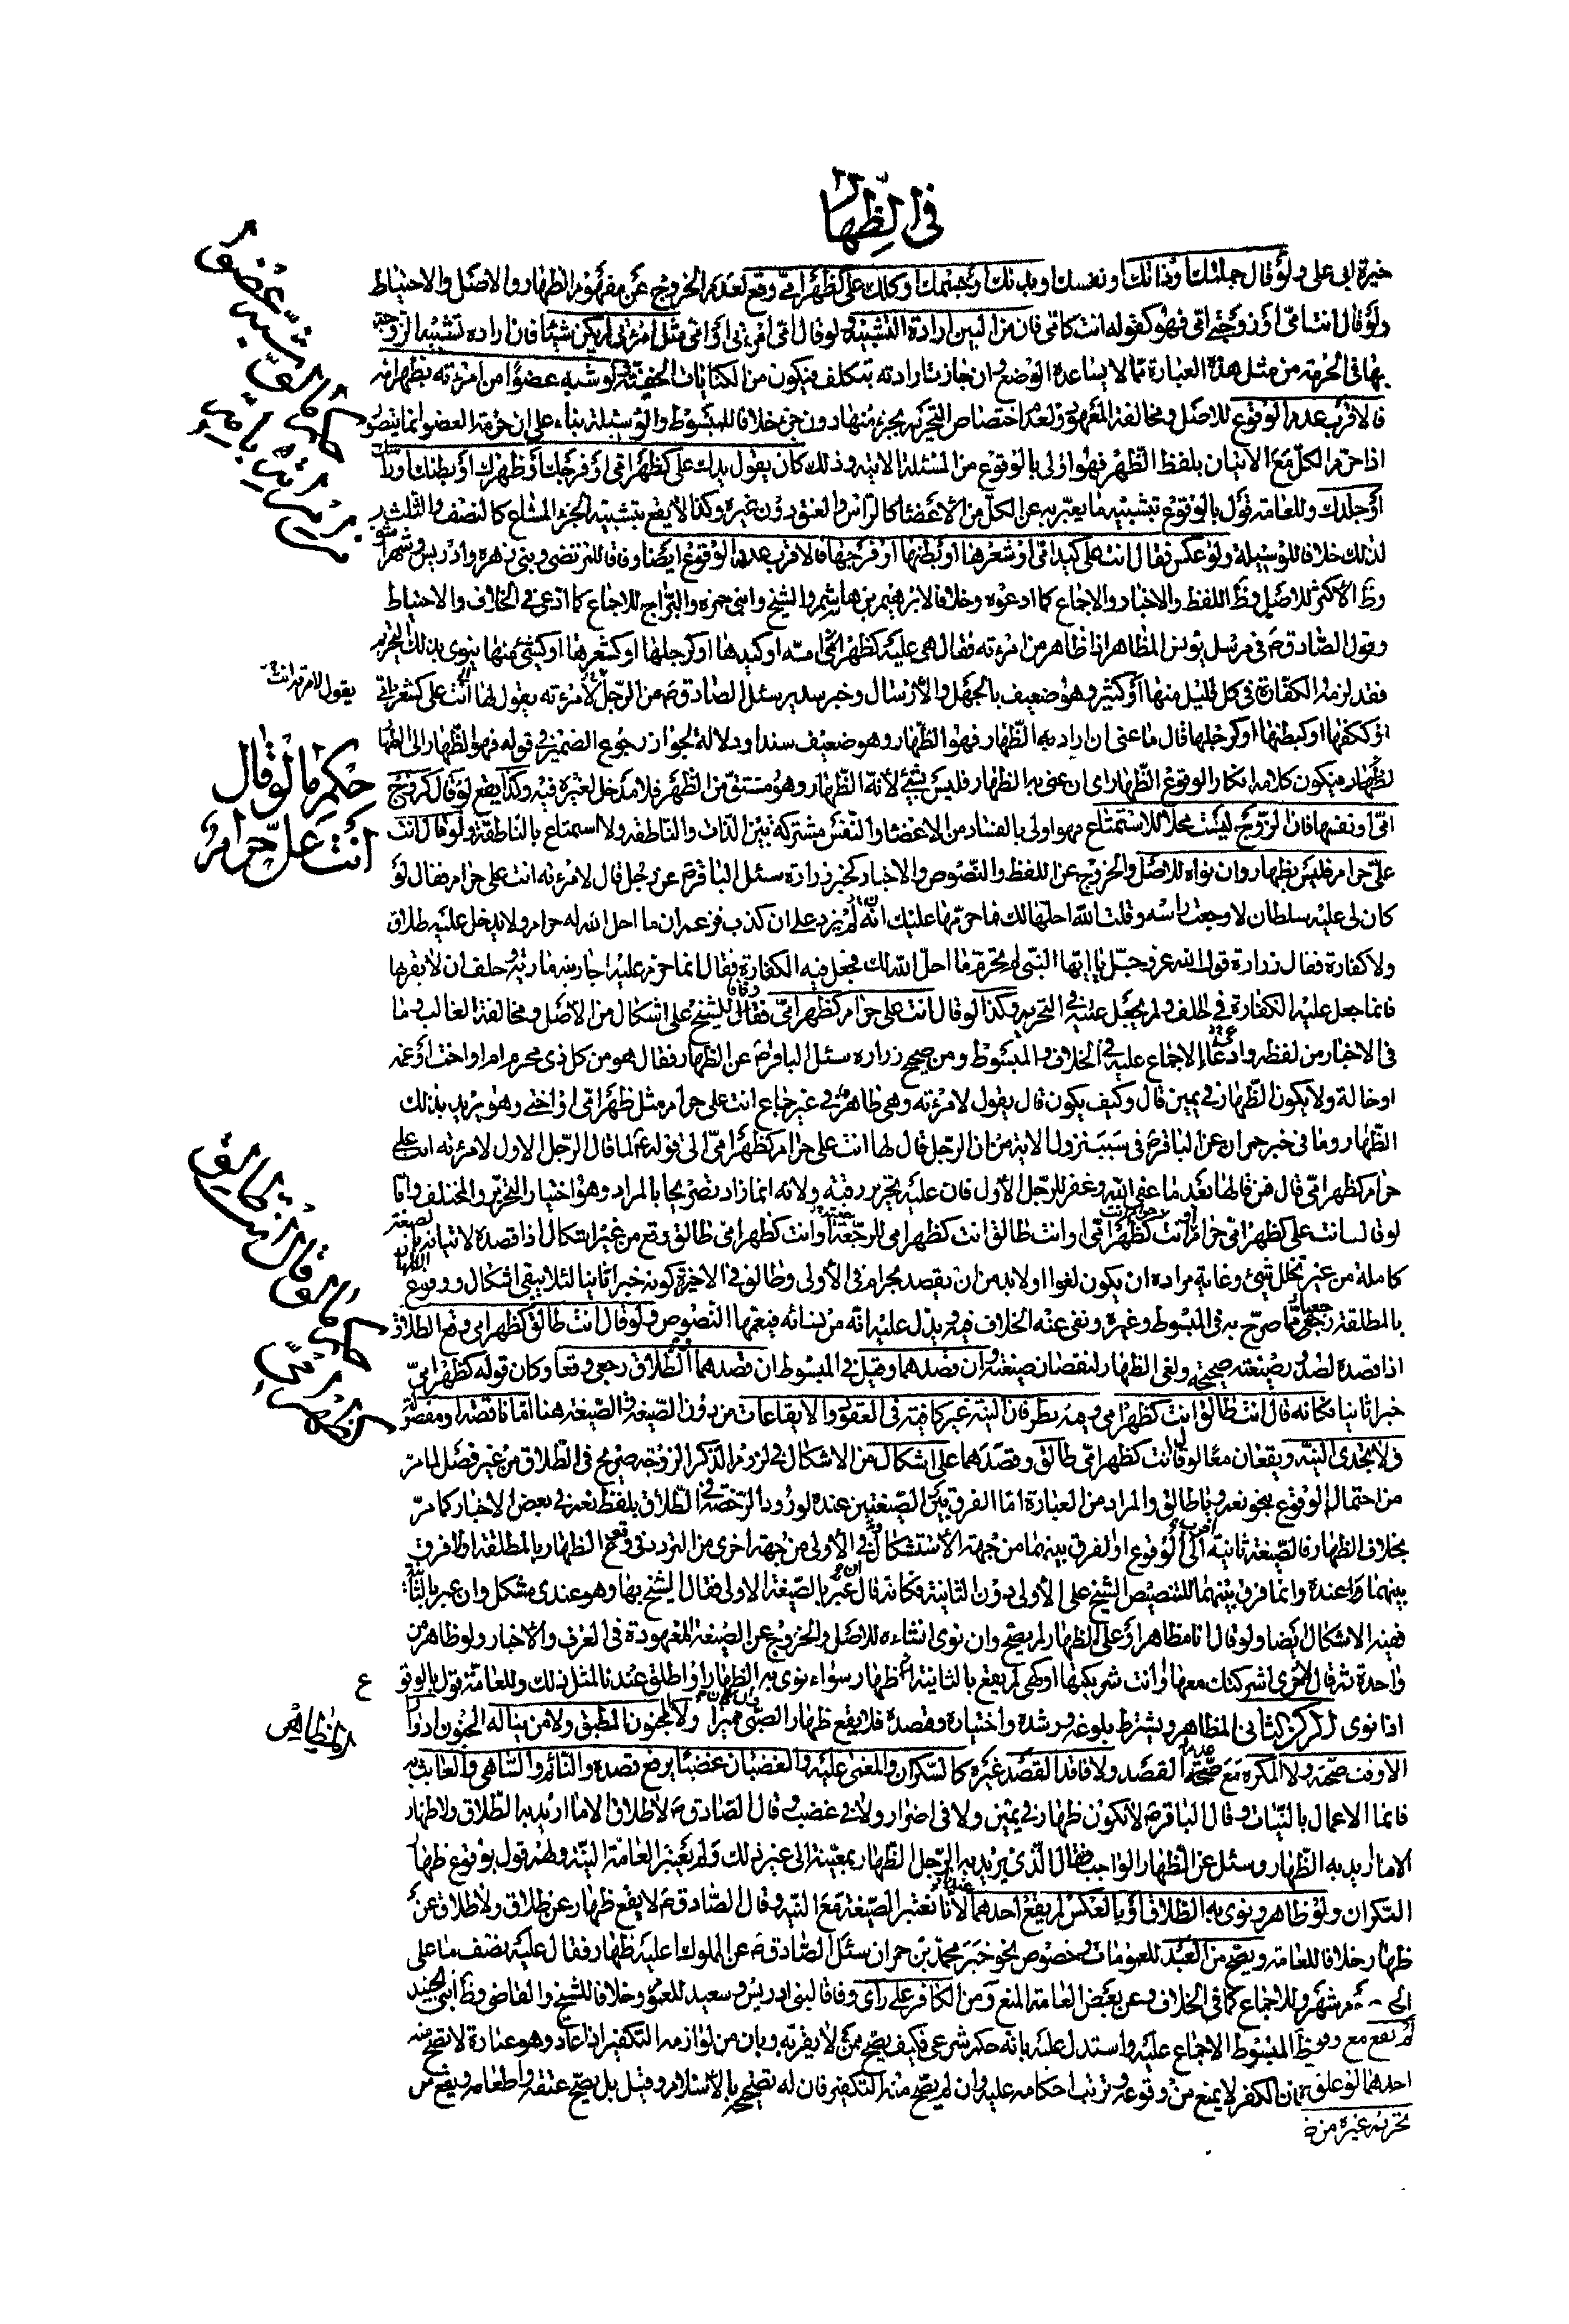 في الظهار
خيرة ابي علي ولو قال جملتك او ذاتك او نفسك او بدنك او جسمك او كلك علي كظهر امي وقع لعدم الخروج عن مفهوم الظهار والاصل والاحتياط
ولو قال انت امي او زوجتي امي فهو كقوله انت كامي فان من البين ارادة التشبيه ولو قال امي امرئتي او امي مثل امرئتي لم يكن شيئا فان اراده تشبيه الزوجة
بها في الحرمة من مثل هذه العبارة مما لا يساعده الوضع وان جاز ارادته بتكلف فيكون من الكنايات الخفية ولو شبه عضوا من امرئته بظهر امه
فالاقرب عدم الوقوع للاصل ومخالفة المعهود ولعدم اختصاص التحريم بجزء منها دون جزء خلافا للمبسوط والوسيلة بناء على ان حرمة العضو انما يتصور
اذا حرم الكل مع الاتيان بلفظ الظهر فهو اولى بالوقوع من المسئلة الاتية وذلك كان يقول يدك علي كظهر امي او فرجك او ظهرك او بطنك او رأسك
او جلدك وللعامة قول بالوقوع بتشبيه ما يعبر به عن الكل من الاعضاء كالراس والعنق دون غيره وكذا لا يقع بتشبيه الجزء المشاع كالنصف والثلث
لذلك خلافا للوسيلة ولو عكس فقال انت علي كيد امي او شعرها او بطنها او فرجها فالاقرب عدم الوقوع ايضا وفاقا للمرتضى وبني زهرة وادريس وشهراشوب
وظ الاكثر للاصل وظ اللفظ والاخبار والاجماع كما ادعوه وخلافا لابرهيم بن هاشم والشيخ وابني حمزة والبراج للاجماع كما ادعى في الخلاف والاحتياط
وقول الصادق ع في مرسل يونس المظاهر اذا ظاهر من امرئته فقال هي عليه كظهر امه او كيدها او كرجلها او كشعرها او كشيء منها ينوي بذلك التحريم
فقد لزمه الكفارة في كل قليل منها او كثير وهو ضعيف بالجهل والارسال وخبر سدير سئل الصادق ع من الرجل يقول لامرئته انت علي كشعر امي
او ككفها او كبطنها او كرجلها قال ما عنى ان اراد به الظهار فهو الظهار وهو ضعيف سندا ودلالة لجواز رجوع الضمير في قوله فهو الظهار الى الظهار
فيكون كلامه انكارا لوقوع الظهار اي ان عنى به الظهار فليس بشيء لانه الظهار وهو مشتق من الظهر فلا مدخل لغيره فيه وكذا يقع لو قال كروح
امي او نفسها فان الروح ليست محلا للاستمتاع فهو اولى بالفساد من الاعضاء والنفس مشتركة بين الذات والناطقة ولا استمتاع بالناطقة ولو قال انت
علي حرام فليس بظهار وان نواه للاصل والخروج عن اللفظ والنصوص والاخبار كخبر زرارة سئل الباقر ع عن رجل قال لامرئته انت علي حرام فقال لو
كان لي عليه سلطان لاوجعت راسه وقلت الله احلها لك فما حرمها عليك انه لم يزد على ان كذب فزعم ان ما احل الله له حرام ولا يدخل عليه طلاق
ولا كفارة فقال زرارة قول الله عز وجل يا ايها النبي لم تحرم ما احل الله لك فجعل فيه الكفارة فقال انما حرم عليه جاريته مارية وحلف ان لا يقربها
فانما جعل عليه الكفارة في الحلف ولم يجعل عليه في التحريم وكذا لو قال انت علي حرام كظهر امي وفاقا للشيخ على اشكال من الاصل ومخالفة الغالب وما
في الاخبار من لفظه وادعاء الاجماع عليه في الخلاف والمبسوط ومن صحيح زرارة سئل الباقر ع عن الظهار فقال هو من كل ذي محرم ام او اخت او عمة
او خالة ولا يكون الظهار في يمين قال وكيف يكون قال يقول لامرئته وهي طاهر في غير جماع انت علي حرام مثل ظهر امي او اختي وهو يريد بذلك
الظهار وما في خبر حمران عن الباقر ع في سبب نزول الاية من ان الرجل قال لها انت علي حرام كظهر امي الى قوله ع لما قال الرجل الاول لامرئته انت علي
حرام كظهر امي قال فمن قالها بعد ما عفى الله وغفر للرجل الاول فان عليه تحرير رقبة ولانه انما زاد تصريحا بالمراد وهو اختيار التحرير والمختلف واما
لو قال انت علي كظهر امي حرام او انت كظهر امي او انت طالق انت كظهر امي للرجعية او انت كظهر امي طالق وقع من غير اشكال اذا قصده لاتيانه بالصيغة
كاملة من غير تخلل شيء وغاية مراده ان يكون لغوا ولابد من ان يقصد بحرام في الاولى وطالق في الاخيرة كونه خبرا ثانيا لئلا يبقى اشكال ووقوع
بالمطلقة رجعيا مما صرح به في المبسوط وغيره ونفى عنه الخلاف فيه ويدل عليه انه من نسائه فيعمها النصوص ولو قال انت طالق كظهر امي وقع الطلاق
اذا قصده لصدور صيغته صحيحة ولغى الظهار لنقصان صيغته وان قصدهما وقيل في المبسوط ان قصدهما والطلاق رجعي وقعا وكان قوله كظهر امي
خبرا ثانيا فكانه قال انت طالق انت كظهر امي وفيه نظر فان النية غير كافية في العقود والايقاعات من دون الصيغة والصيغة هنا اما ناقصة او مفصولة
ولا يجدي النية ويقعان معا لو قال انت كظهر امي طالق وقصدهما على اشكال من الاشكال في لزوم الذكر الزوجة صريح في الطلاق من غير فصل لما مر
من احتمال الوقوع بنحو نعم ويا طالق والمراد من العبارة اما الفرق بين الصيغتين عنده لورود الرخصة في الطلاق بلفظ نعم في بعض الاخبار كما مر
بخلاف الظهار فالصيغة ثانية اقرب الى الوقوع او الفرق بينهما من جهة الاستشكال في الاولى من جهة اخرى من التردد في وقوع الظهار بالمطلقة او لا فرق
بينهما عنده وانما فرق بينهما للتنصيص الشيخ على الاولى دون الثانية فكانه قال ان عبر بالصيغة الاولى فقال الشيخ بها وهو عندي مشكل وان عبر بالثانية
ففيه الاشكال ايضا ولو قال انا مظاهر او علي الظهار لم يصح وان نوى انشاءه للاصل والخروج عن الصيغة المعهودة في العرف والاخبار ولو ظاهر من
واحدة ثم قال للاخرى اشركتك معها او انت شريكتها او كهي لم يقع بالثانية ظهار سواء نوى به الظهار او اطلق عندنا لمثل ذلك وللعامة قول بالوقوع
اذا نوى الركن الثاني المظاهر ويشترط بلوغه ورشده واختياره وقصده فلا يقع ظهار الصبي وان كان مميزا ولا المجنون المطبق ولا من يناله الجنون ادوارا
الا وقت صحته ولا المكره مع عدم القصد ولا فاقد القصد غيره كالسكران والمغمى عليه والغضبان غضبا يرفع قصده والنائم والساهي والعابث به
فانما الاعمال بالنيات وقال الباقر ع لا يكون ظهار في يمين ولا في اضرار ولا في غضب وقال الصادق ع لا طلاق الا ما اريد به الطلاق ولا ظهار
الا ما اريد به الظهار وسئل عن الظهار الواجب فقال الذي يريد به الرجل الظهار بعينه الى غير ذلك ولم يعتبر العامة النية ولهم قول بوقوع ظهار
السكران ولو ظاهر ونوى به الطلاق او بالعكس لم يقع احدهما لانا نعتبر الصيغة مع النية وقال الصادق ع لا يقع ظهار عن طلاق ولا طلاق عن
ظهار خلافا للعامة ويصح من العبد للعمومات وخصوص نحو خبر محمد بن حمران سئل الصادق ع عن المملوك اعليه ظهار فقال عليه نصف ما على
شهر وللاجماع كما في الخلاف وعن بعض العامة المنع ومن الكافر على راي وفاقا لبني ادريس وسعيد للعموم وخلافا للشيخ والقاضي وظ ابني الجنيد
وفي ظ المبسوط الاجماع عليه واستدل عليه بانه حكم شرعي فكيف يصح ممن لا يقر به وبان من لوازمه التكفير اذا عاد وهو عبادة لا تصح منه
بان الكفر لا يمنع من وقوعه وترتب احكامه عليه وان لم يصح منه التكفير فان له تصحيحه بالاسلام وقيل بل يصح عتقه واطعامه ويقع من
يقول لامرئته انت
حكم ما لو قال
انت علي حرام
حكم ما لو قال انت طالق
كظهر امي
المظاهر